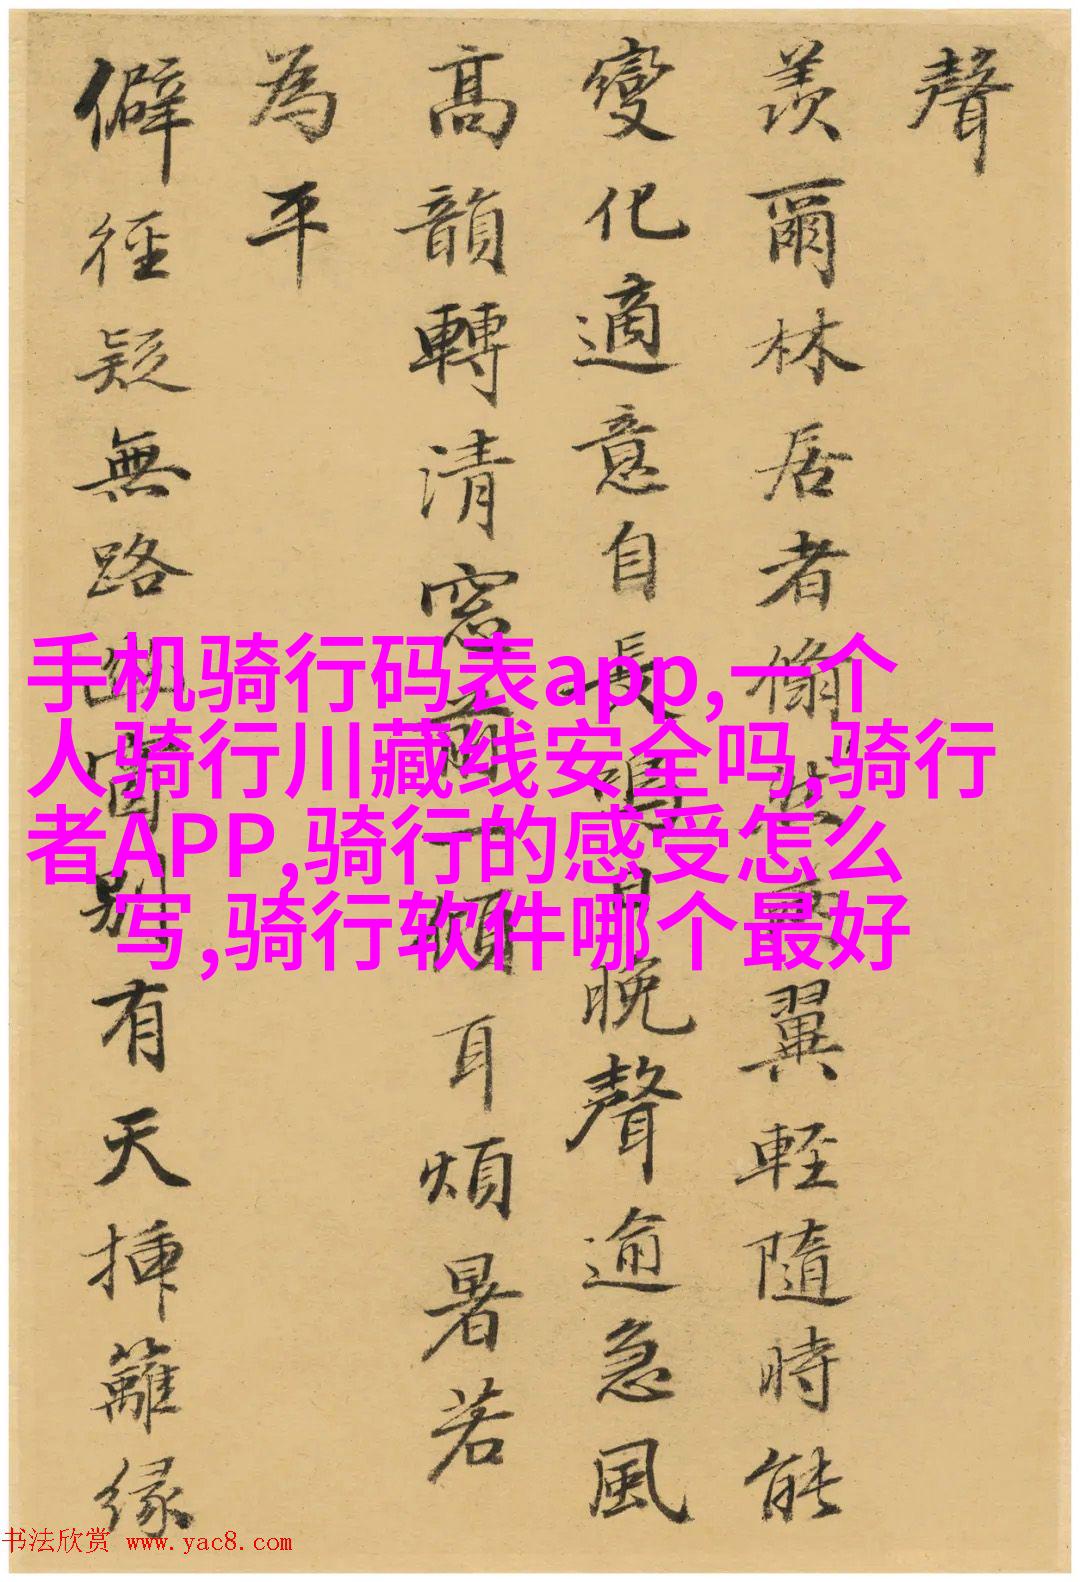 聲
羨爾林居者翛然兩翼輕隨時能
變化適意自長鳴日晚聲逾急風
高韻轉清窓前一傾耳煩暑若
為平
僻徑疑無路幽窗別有天插籬緣
手机骑行码表app,一个
人骑行川藏线安全吗,骑行
者APP,骑行的感受怎么
写,骑行软件哪个最好
书法欣赏 www.yac8.com